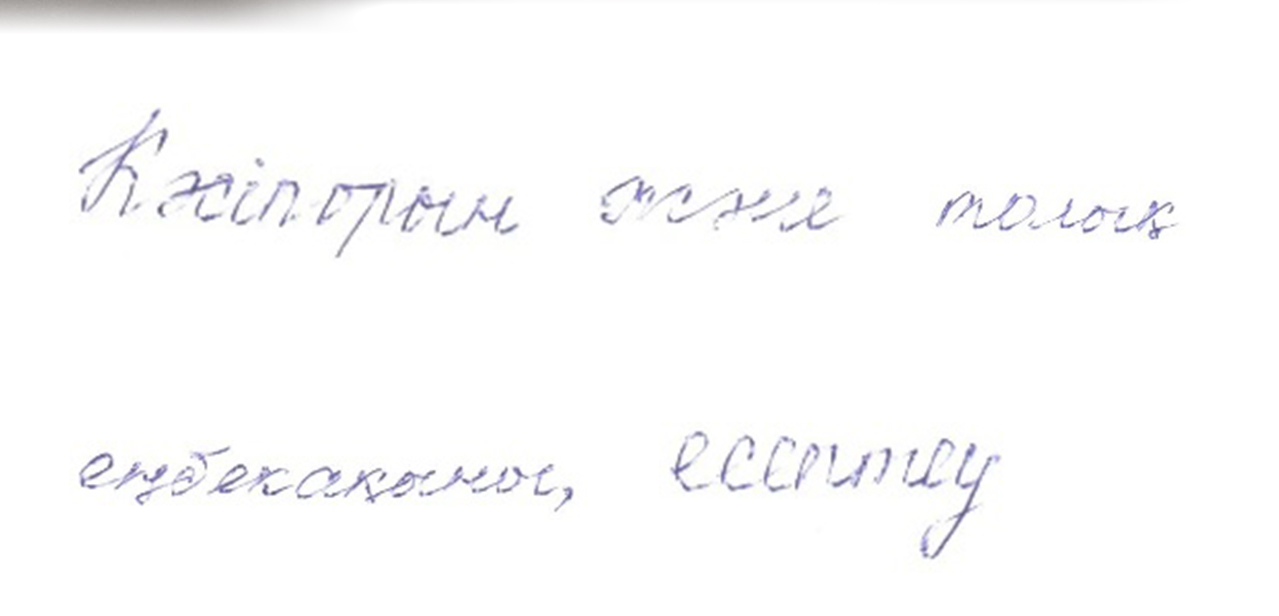 Кәсіпорын және толық
еңбекақыны, есептеу